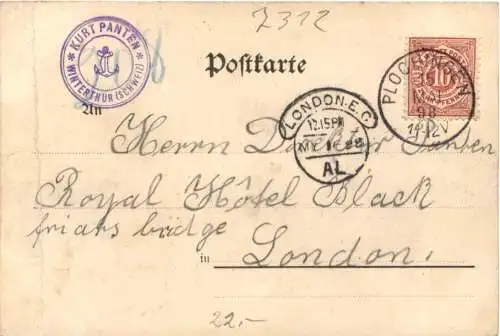 7312
KURT PANTEN
WINTERTHUR (SCHWEIZ)
Postkarte
10
PLOCHINGEN
MAI
98
LONDON.E.C
12.15PM
MY 98
AL
An
Herrn Panten
Royal Hôtel Black
friars bridge
in London.
22.-